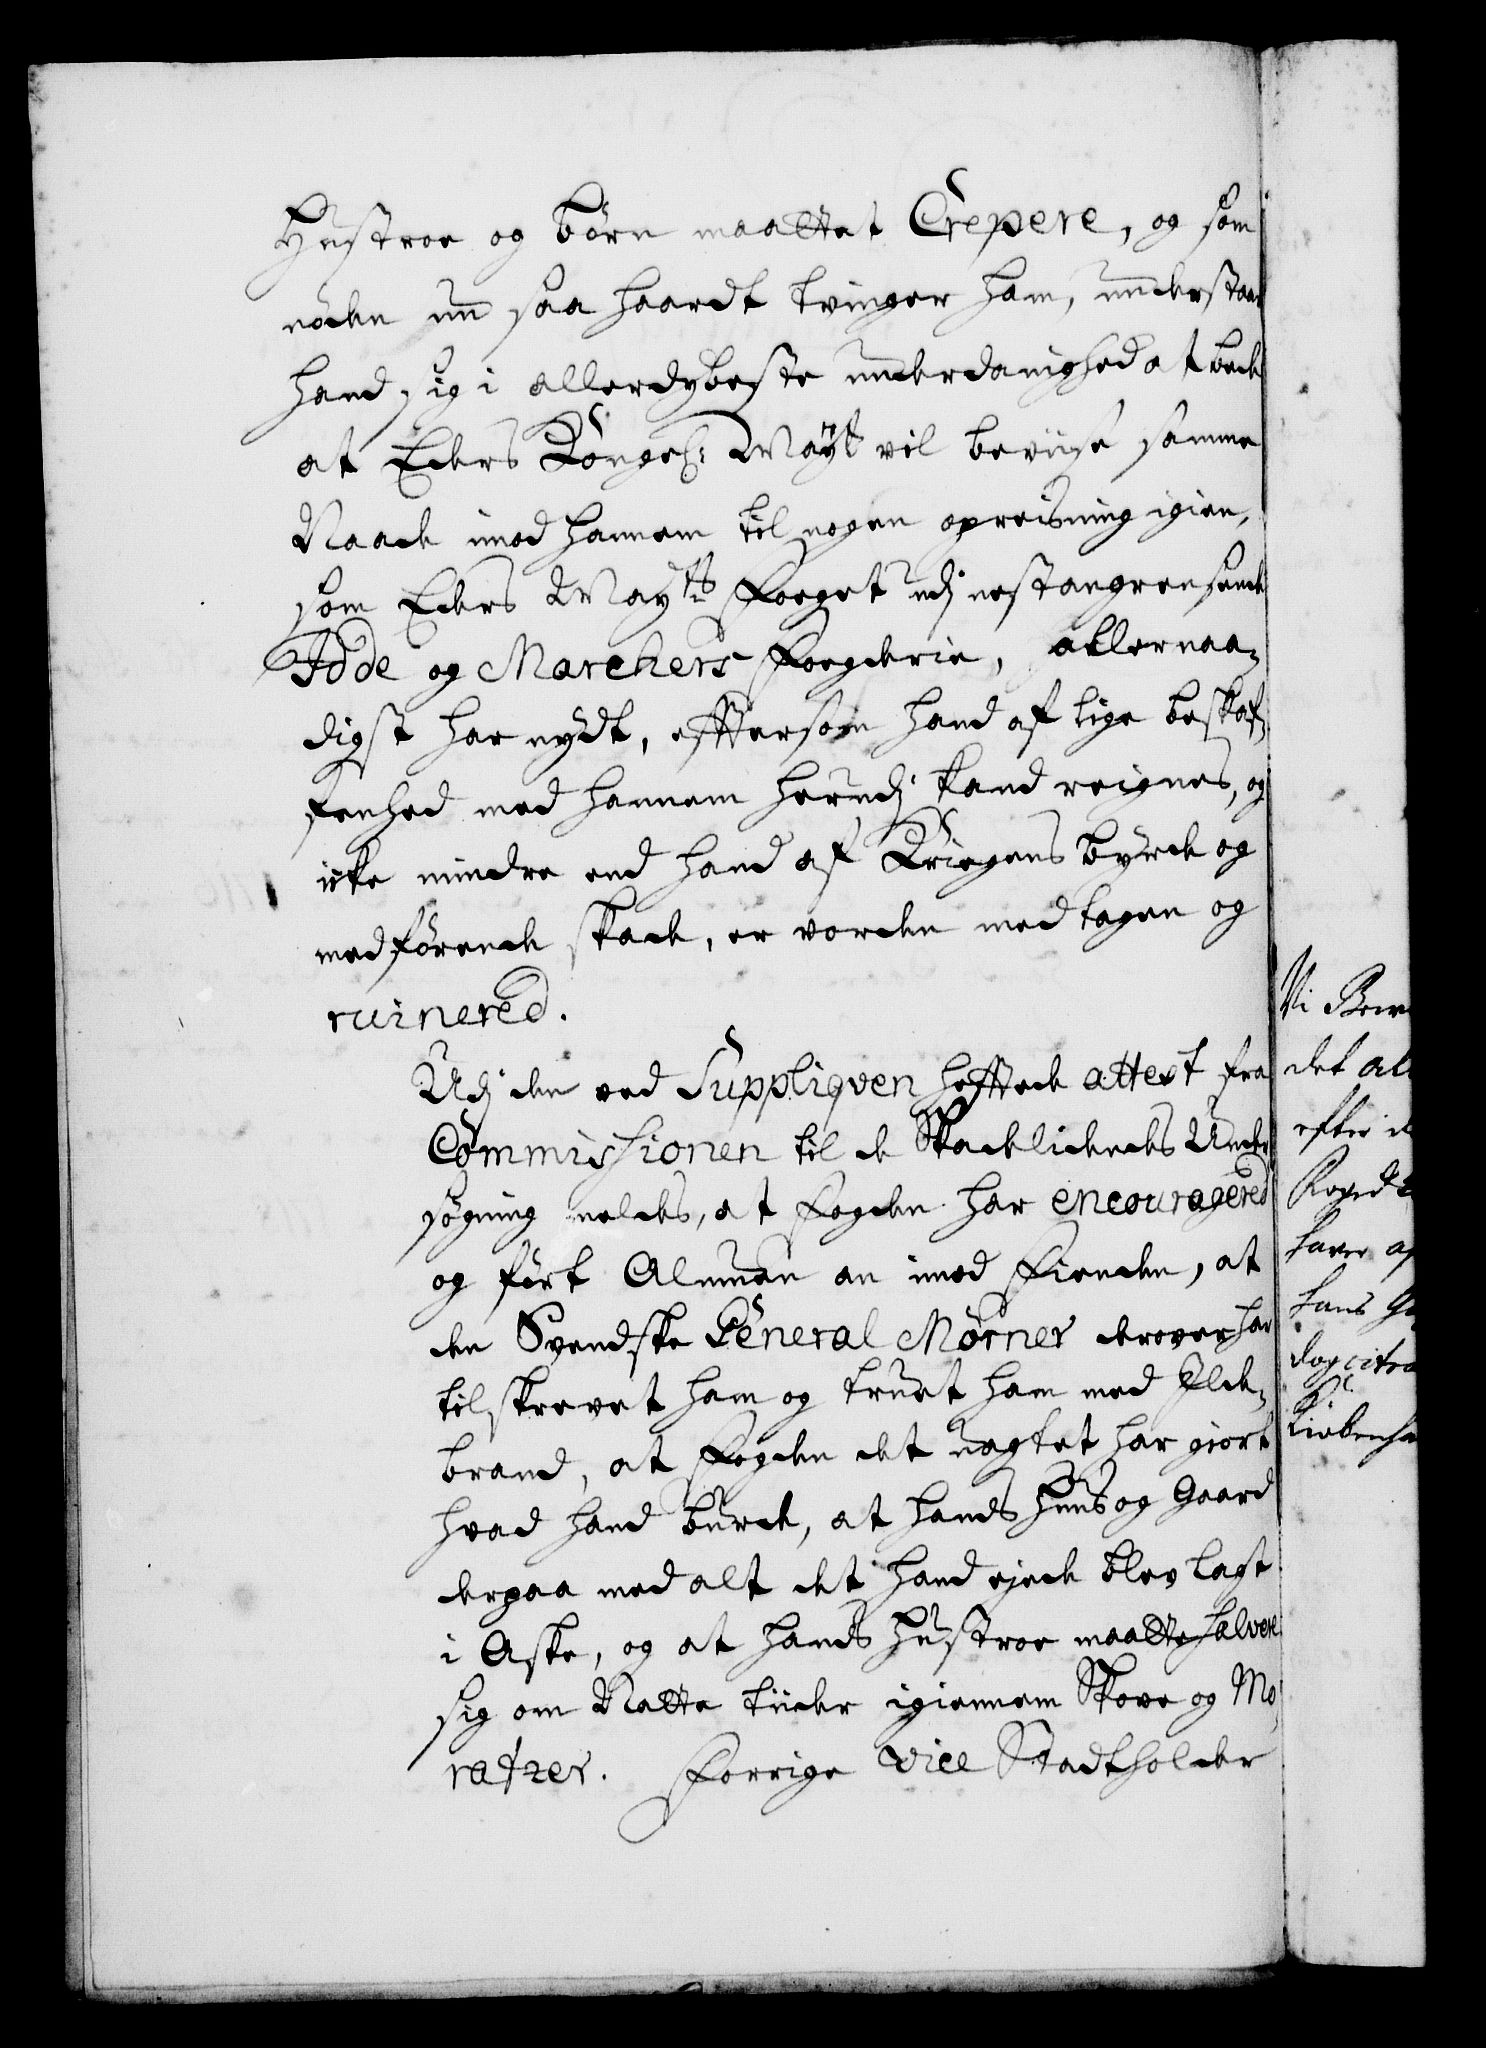 Hustroe og börn maattet Crepere, og som
nöden nu saa haardt tvinger ham, understaar
hand sig i allerdybeste underdanighed at bede
at Eders Kongel: Mayt vil beviise samme
Naade imod hannem til nogen opreisning igien,
som Eders Mayts Foeget udj nestangrensende
Idde og Marckers Foegderie, allernaa-
digst har nydt, efftersom hand af lige beskaf-
fenhed med hannem herudj kand reignes, og
icke mindre end hand af Kriegens byrde og
medförende skade, er vorden medtagen og
ruinered.
Udj den ved Suppliqven heftede attest fra
Commissionen til de Skadelidendes Under
søgning meldes, at Fogden har encouragered
og fört Almuen an imod Fienden, at
den Svendske General Mörner derover har
tilskrevet ham og truet ham med Ild-
brand, at Fogden det uagtet har giort
hvad hand burde, at hands Huus og Gaard
derpaa med alt det hand ejede blev lagt
i Aske, og at hands Hustroe maatte salvere
sig om Natte tiider igiennem Skove og Mo
ratzer. Forrige Vice Stadtholder
Vi
det
efter